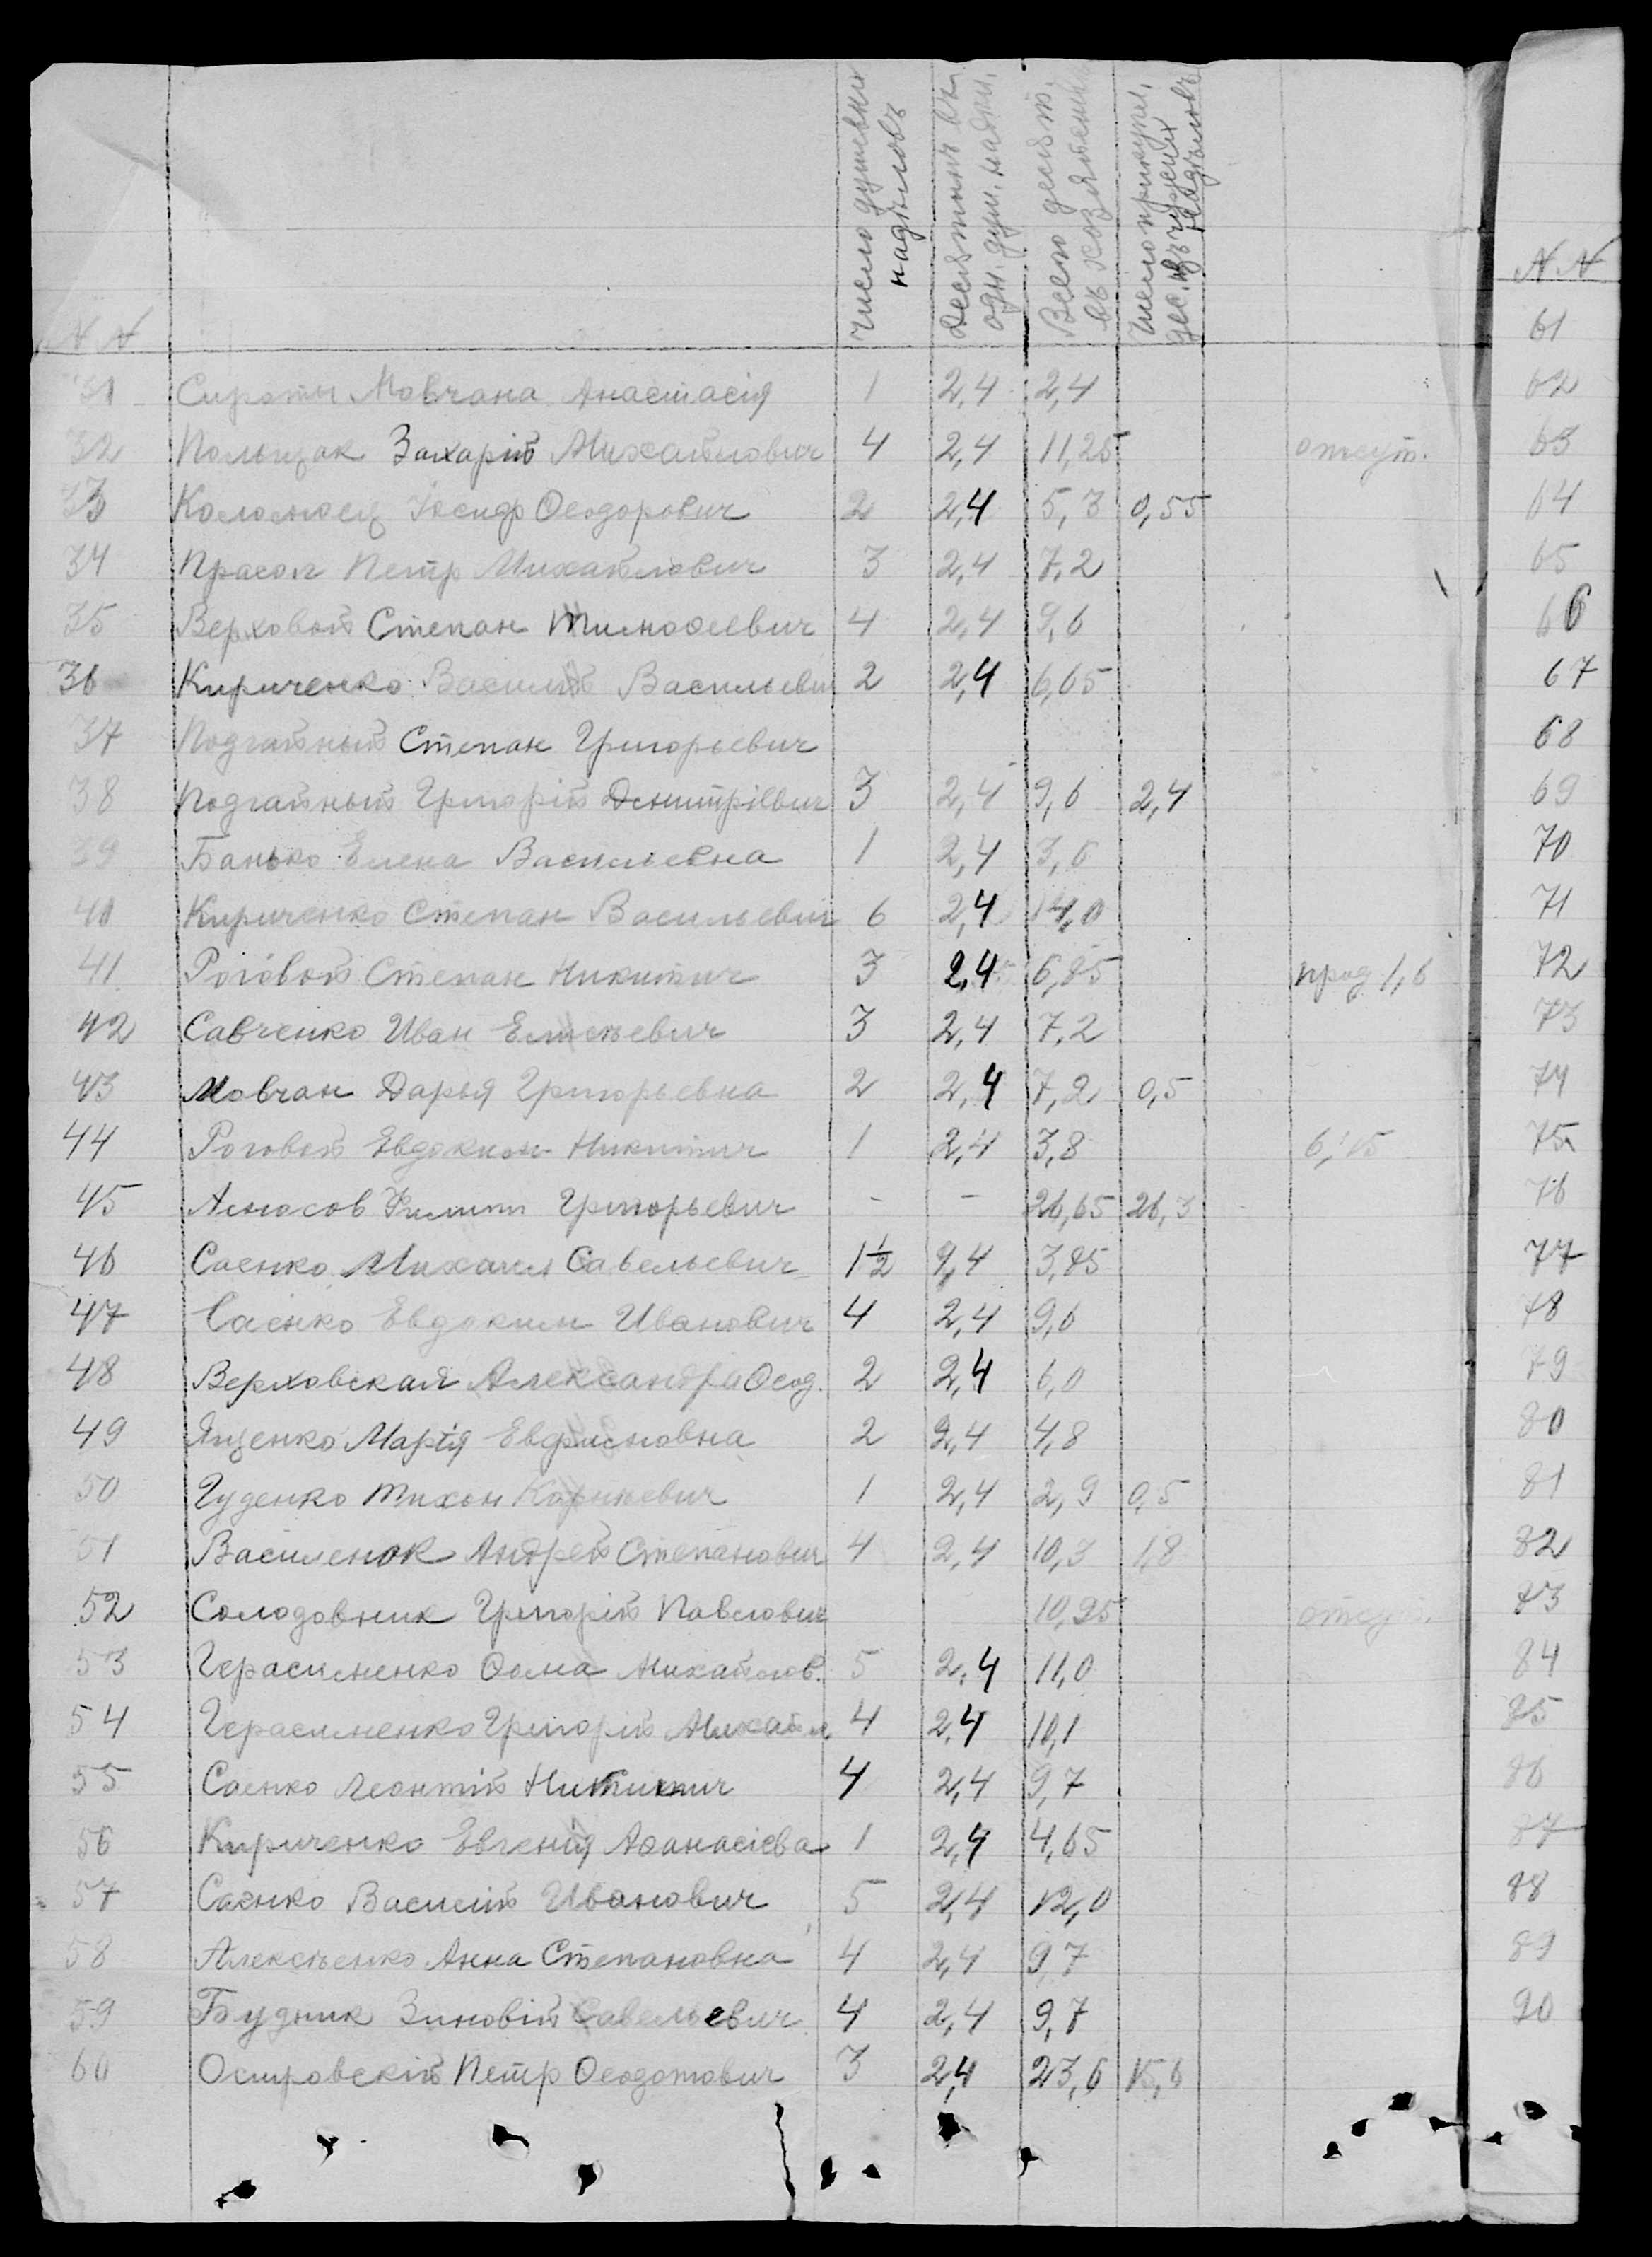 N N
число душевых надѣловъ
Десятинъ въ одн. душ. надѣл.
Всего десят. въ хозяйствѣ
Число прикупл. дес. изъ чужихъ надѣловъ
31 Сироты Мовчана Анастасія 1 2,4 2,4
32 Польщак Захарій Михайлович 4 2,4 11,25 отсут.
33 Коломоец Іосиф Ѳеодорович 2 2,4 5,3 0,55
34 Прасол Петр Михайлович 3 2,4 7,2
35 Верховой Степан Тимоѳеевич 4 2,4 9,6
36 Кириченко Василій Васильевич 2 2,4 6,65
37 Подгайный Степан Григорьевич
38 Подгайный Григорій Димитріевич 3 2,4 9,6 2,4
39 Банько Елена Васильевна 1 2,4 3,6
40 Кириченко Степан Васильевич 6 2,4 14,0
41 Роговой Степан Никитич 3 2,4 6,85 прод 1,6
42 Савченко Иван 3 2,4 7,2
43 Мовчан Дарья Григорьевна 2 2,4 7,2 0,5
44 Роговой Евдоким Никитич 1 2,4 3,8 6,15
45 Аносов Филипп Григорьевич - - 26,65 26,3
46 Саенко Михаил Савельевич 1½ 2,4 3,85
47 Саенко Евдоким Иванович 4 2,4 9,6
48 Верховская Александра Ѳеод. 2 2,4 6,0
49 Яценко Марія 2 2,4 4,8
50 Гуденко Тихон 1 2,4 2,9 0,5
51 Василенок Андрей Степанович 4 2,4 10,3 1,8
52 Солодовник Григорій Павлович 10,25 отсут.
53 Герасименко Ѳома Михайлов. 5 2,4 11,0
54 Герасименко Григорій Михайл 4 2,4 10,1
55 Саенко Леонтій Никитич 4 2,4 9,7
56 Кириченко Евгенія Аѳанасіева 1 2,4 4,65
57 Саенко Василій Иванович 5 2,4 12,0
58 Алексѣенко Анна Степановна 4 2,4 9,7
59 Будник Зиновій Савельевич 4 2,4 9,7
60 Островскій Петр Ѳеодотович 3 2,4 23,6 15,6
N N
61
62
63
64
65
66
67
68
69
70
71
72
73
74
75
76
77
78
79
80
81
82
83
84
85
86
87
88
89
90